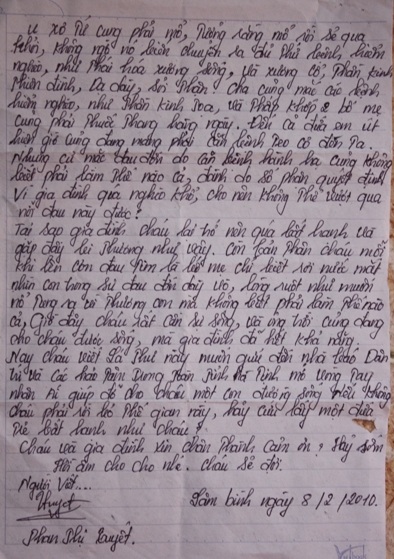 u xơ Tử cung phải mổ, Tưởng rằng mổ rồi sẽ qua
khỏi, không ngờ nó luôn chuyển ra đủ thứ bệnh, hiểm
nghèo, như thoái hóa xương sống, và xương cổ, Thần kinh
thiên đình, Dạ dày, rồi Phần cha cũng mắc các bệnh
hiểm nghèo, như Thần kinh toa, và thấp khớp 2 bố mẹ
cũng phải thuốc thang hàng ngày. Đến cả đứa em út
hiện giờ cũng đang mang phải căn bệnh
Nhưng cứ mắc đau đớn do căn bệnh hành hạ cũng không
biết phải làm thế nào cả, đành do số phận quyết định
Vì gia đình quá nghèo khổ, cho nên không thể vượt qua
nỗi đau này được?
Tại sao gia đình cháu lại trở nên quá bất hạnh và
gặp đầy bi thương như vậy. Còn bản thân cháu mỗi
khi lên cơn đau tim là bố mẹ chỉ biết rơi nước mắt
nhìn con trong sự đau đớn dày vò, lòng ruột như muốn
nổ tung ra vì thương con mà không biết phải làm thế nào
cả, Giờ đây cháu rất cần sự sống, và ông trời cũng đang
cho cháu được sống, mà gia đình đã hết khả năng.
Nay cháu viết lá thư này muốn gửi đến nhà báo Dân
trí và các nhà mong rằng
nhân ái giúp đỡ cho cháu một con đường sống nếu không
cháu phải rời bỏ thế gian này, hãy cứu lấy một đứa
trẻ bất hạnh như cháu?
Cháu và gia đình xin chân thành cảm ơn! Hãy sớm
hồi âm cho cho nhé. cháu sẽ đợi.
Người Viết....
Lâm bình ngày 8/2/2010.
Phan Thị Tuyết.